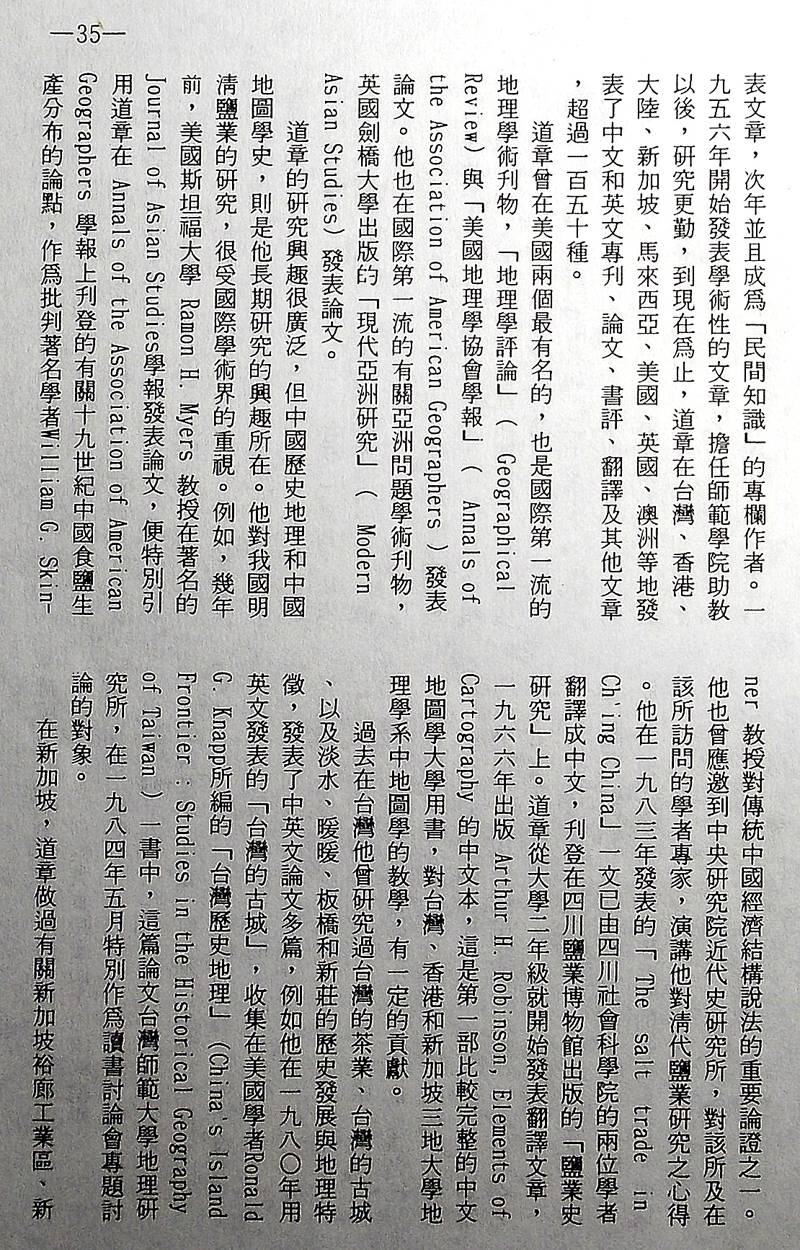 —35—
表文章，次年並且成爲「民間知識」的專欄作者。一
九五六年開始發表學術性的文章，擔任師範學院助教
以後，研究更勤，到現在爲止，道章在台灣、香港、
大陸、新加坡、馬來西亞、美國、英國、澳洲等地發
表了中文和英文專刊、論文、書評、翻譯及其他文章
，超過一百五十種。
道章曾在美國兩個最有名的，也是國際第一流的
地理學術刊物，「地理學評論」（ Geographical
Review）與「美國地理學協會學報」（ Annals of
the Association of American Geographers ）發表
論文。他也在國際第一流的有關亞洲問題學術刊物，
英國劍橋大學出版的「現代亞洲研究」（ Modern
Asian Studies）發表論文。
道章的研究興趣很廣泛，但中國歷史地理和中國
地圖學史，則是他長期研究的興趣所在。他對我國明
淸鹽業的研究，很受國際學術界的重視。例如，幾年
前，美國斯坦福大學 Ramon H. Myers 教授在著名的
Journal of Asian Studies學報發表論文，便特別引
用道章在 Annals of the Association of American
Geographers 學報上刋登的有關十九世紀中國食鹽生
產分布的論點，作爲批判著名學者William G. Skin-
ner 教授對傳統中國經濟結構說法的重要論證之一。
他也曾應邀到中央研究院近代史研究所，對該所及在
該所訪問的學者專家，演講他對淸代鹽業研究之心得
。他在一九八三年發表的「 The salt trade in
Ch'ing China」一文已由四川社會科學院的兩位學者
翻譯成中文，刋登在四川鹽業博物館出版的「鹽業史
研究」上。道章從大學二年級就開始發表翻譯文章，
一九六六年出版 Arthur H. Robinson, Elements of
Cartography 的中文本，這是第一部比較完整的中文
地圖學大學用書，對台灣、香港和新加坡三地大學地
理學系中地圖學的教學，有一定的貢獻。
過去在台灣他曾研究過台灣的茶業、台灣的古城
、以及淡水、暖暖、板橋和新莊的歷史發展與地理特
徵，發表了中英文論文多篇，例如他在一九八〇年用
英文發表的「台灣的古城」，收集在美國學者Ronald
G. Knapp所編的「台灣歷史地理」（China's Island
Frontier : Studies in the Historical Geography
of Taiwan ）一書中，這篇論文台灣師範大學地理研
究所，在一九八四年五月特別作爲讀書討論會專題討
論的對象。
在新加坡，道章做過有關新加坡裕廊工業區、新